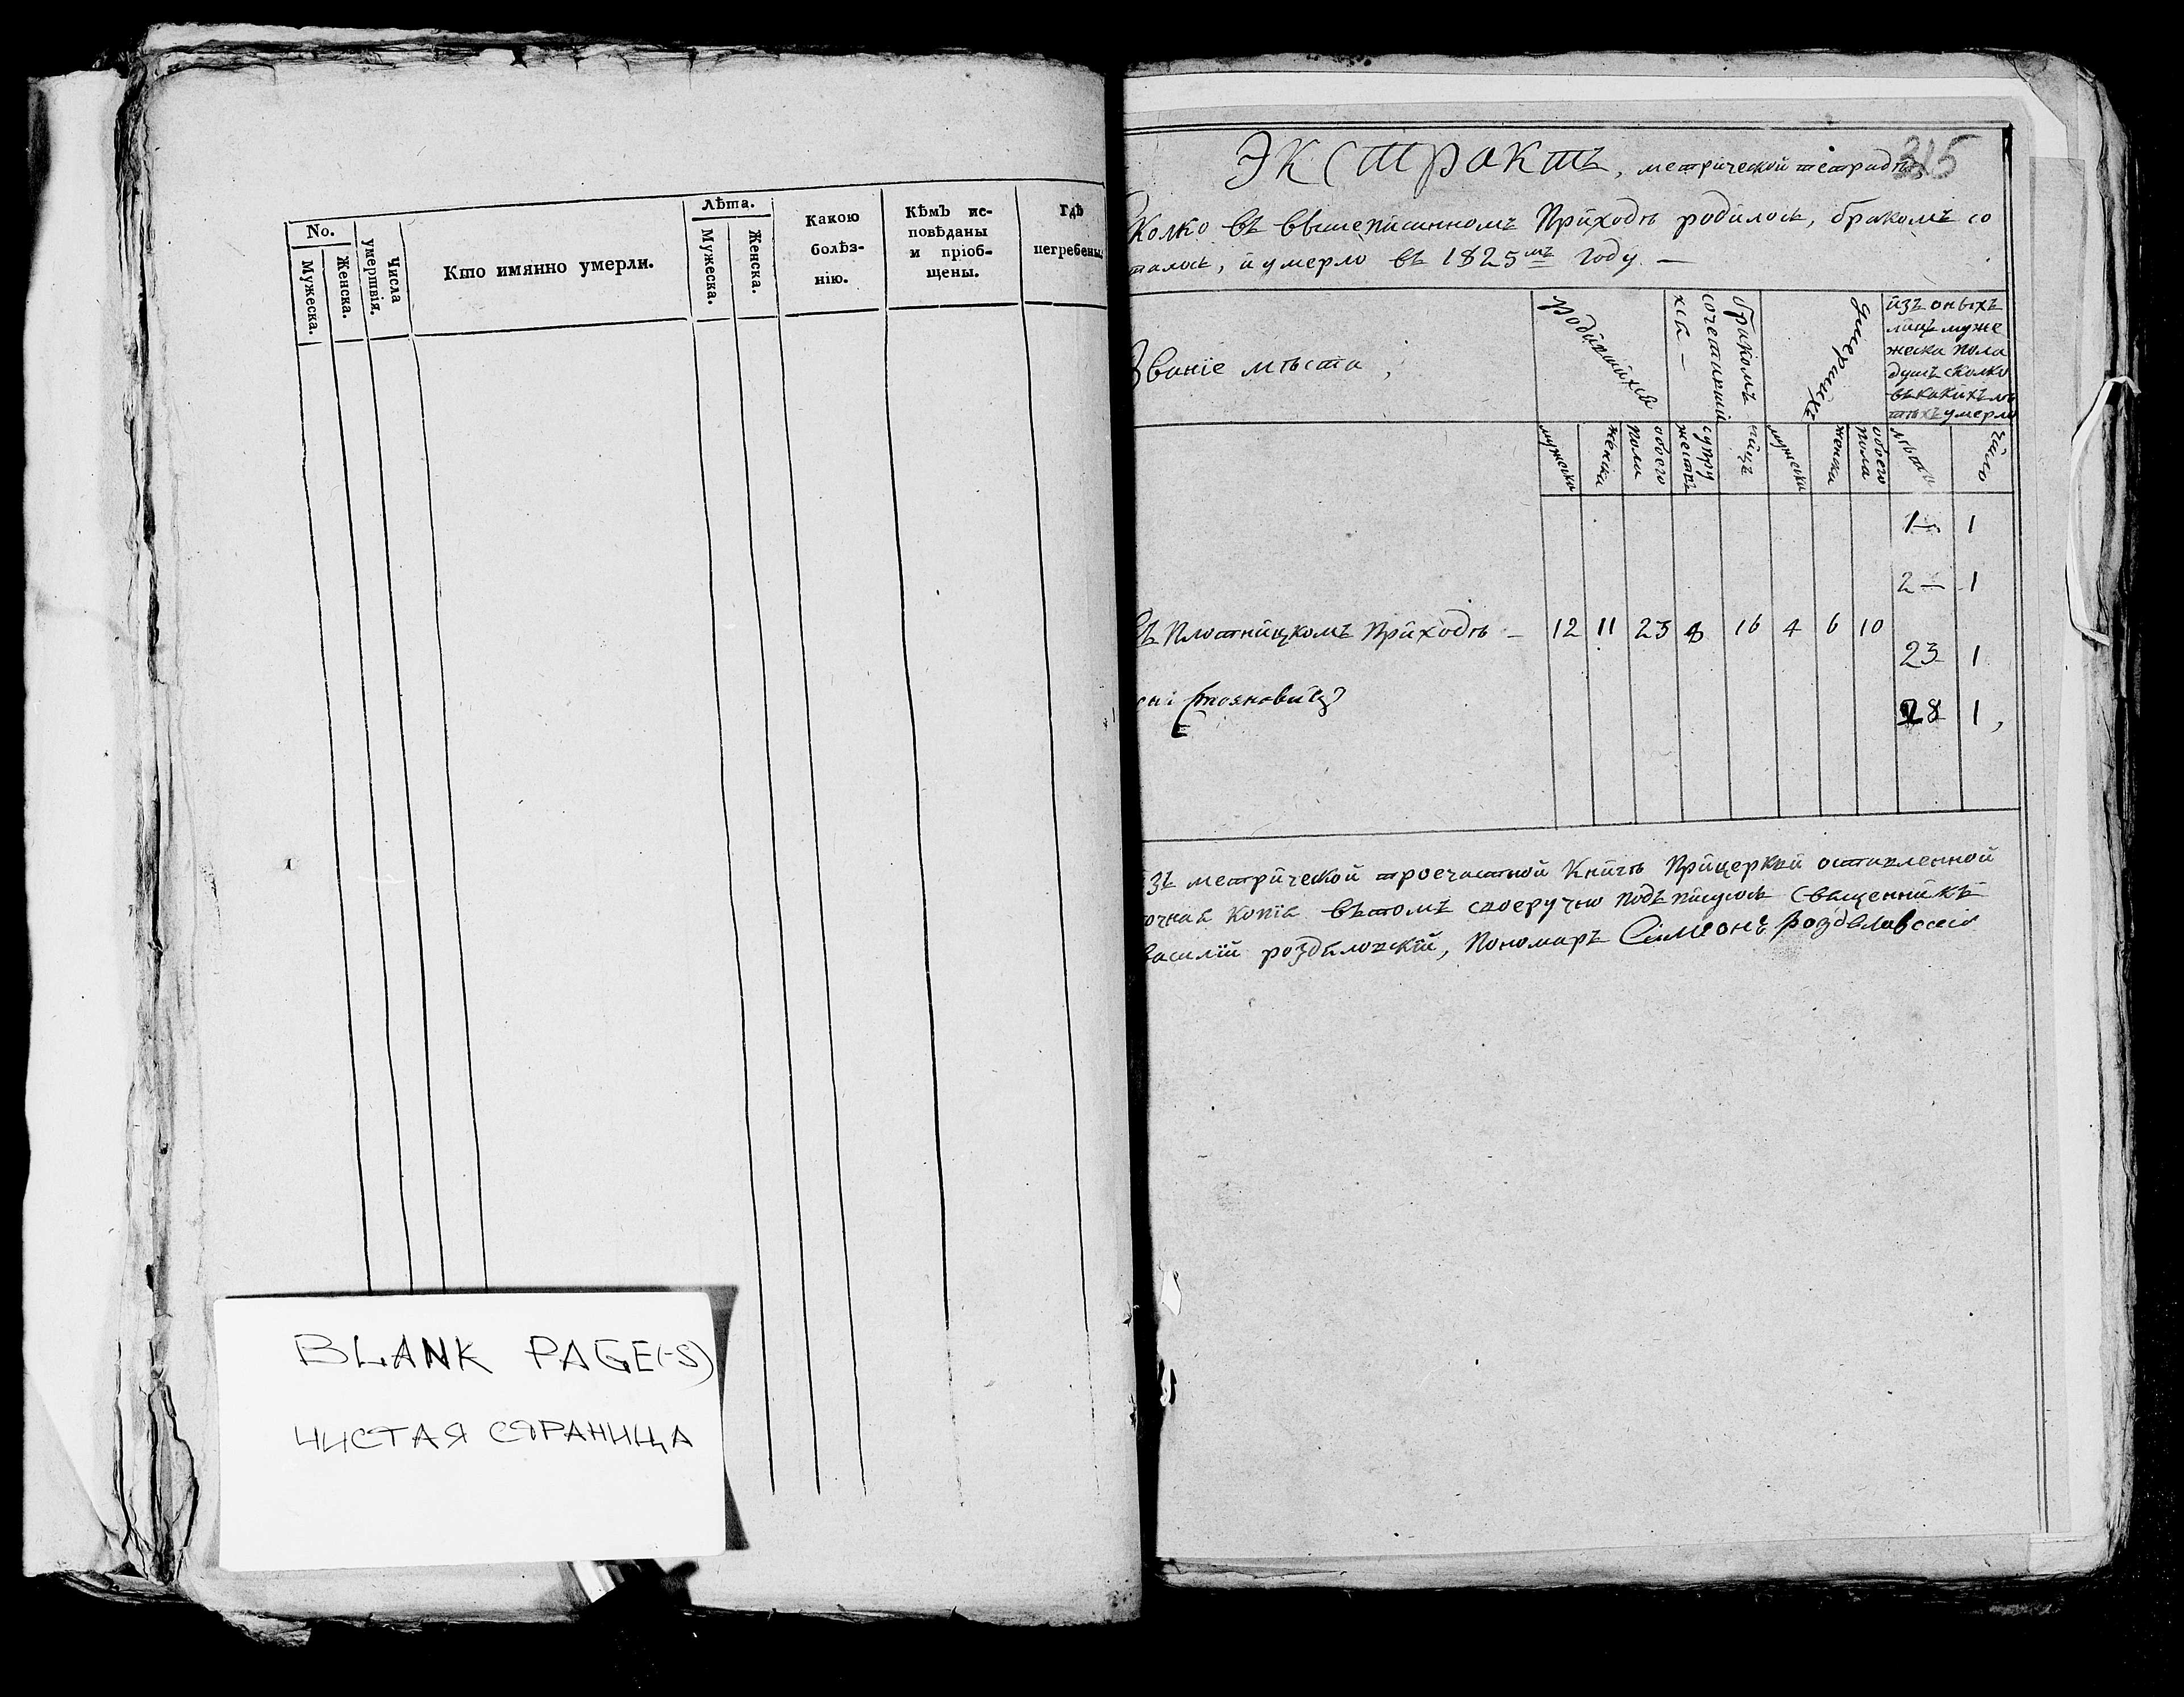 No.
Мужеска.
Женска.
Числа
умертвія.
Кто имянно умерли.
Лѣта.
Мужеска.
Женска.
Какою
болѣз-
нію.
Кѣмъ ис-
повѣданы
и пріоб-
щены.
Гдѣ
погребены
BLANK PAGE(-S)
ЧИСТАЯ СТРАНИЦА
315
Экстрактъ, метрической тетради,
колко въ вышеписанномъ Приходѣ родилось, бракомъ со
талось, и умерло въ 1825мъ году. —
Званіе мѣста,
Родившихся
бракомъ
сочетавший
хся —
Умерших
изъ оныхъ
лицъ муже
жеска пола
душъ сколко
въ какихъ лѣ
тѣхъ умерло
мужска
женска
обоего
пола
супру
жествъ
лицъ
мужеска
женска
обоего
пола
лѣта
число
1— 1
2— 1
въ Плотницкомъ Приходѣ — 12 11 23 8 16 4 6 10
23 1
28 1,
Стояновичъ
зъ метрической троечастной Книги Прицеркви оставленной
точная копія въ томъ своеручно подъписуюсь Священникъ
Василій роздяловскій, Пономарь Симеонъ роздяловскій